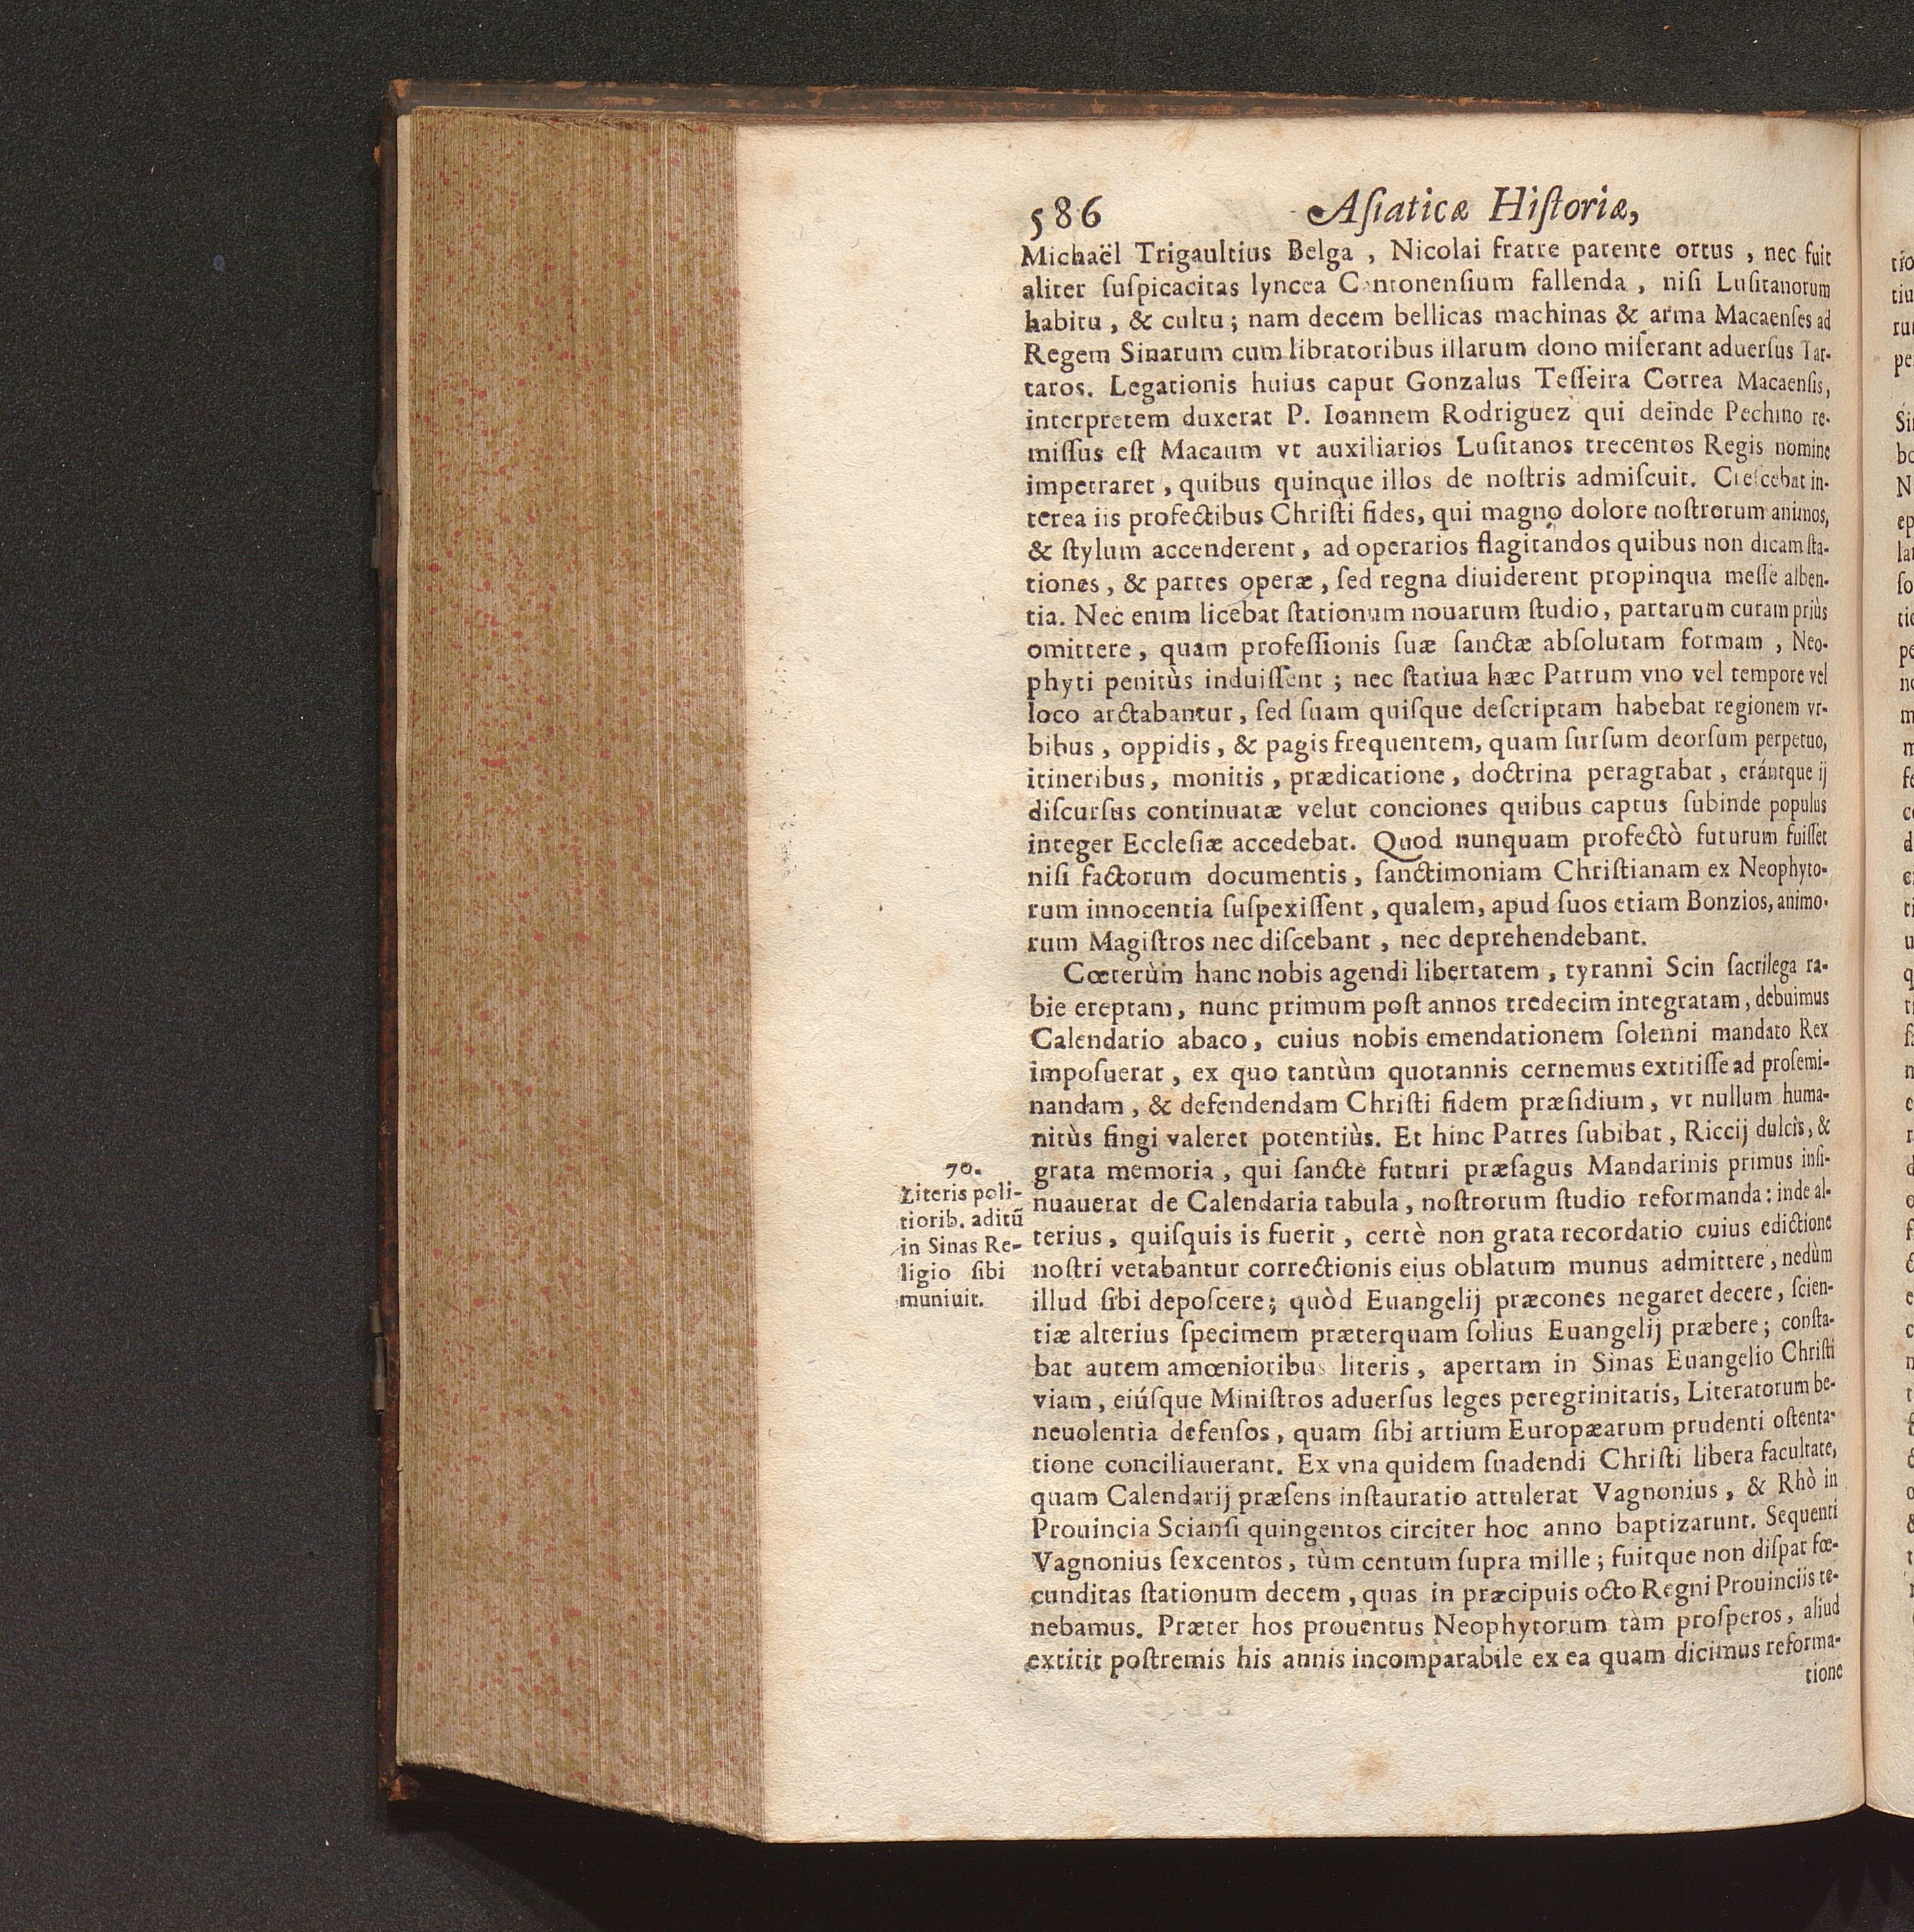 586 Aſiaticæ Hiſtoriæ,
Michaël Trigaultius Belga , Nicolai fratre patente ortus , nec fuit
aliter ſuſpicacitas lyncea Cantonenſium fallenda , niſi Luſitanorum
habitu , & cultu ; nam decem bellicas machinas & arma Macaenſes ad
Regem Sinarum cum libratoribus illarum dono miſerant aduerſus Tar-
taros. Legationis huius caput Gonzalus Teſſeira Correa Macaenſis,
interpretem duxerat P. Ioannem Rodriguez qui deinde Pechino re-
miſſus eſt Macaum vt auxiliarios Luſitanos trecentos Regis nomine
impetraret , quibus quinque illos de noſtris admiſcuit. Creſcebat in-
terea iis profectibus Chriſti fides, qui magno dolore noſtrorum animos,
& ſtylum accenderent , ad operarios flagitandos quibus non dicam ſta-
tiones , & partes operæ , ſed regna diuiderent propinqua meſſe alben-
tia. Nec enim licebat ſtationum nouarum ſtudio, partarum curam priùs
omittere , quam profeſſionis ſuæ ſanctæ abſolutam formam , Neo-
phyti penitùs induiſſent ; nec ſtatiua hæc Patrum vno vel tempore vel
loco arctabantur , ſed ſuam quiſque deſcriptam habebat regionem vr-
bibus , oppidis , & pagis frequentem, quam ſurſum deorſum perpetuo,
itineribus, monitis , prædicatione , doctrina peragrabat , erántque ij
diſcurſus continuatæ velut conciones quibus captus ſubinde populus
integer Eccleſiæ accedebat. Quod nunquam profectò futurum fuiſſet
niſi factorum documentis , ſanctimoniam Chriſtianam ex Neophyto-
rum innocentia ſuſpexiſſent , qualem, apud ſuos etiam Bonzios, animo-
rum Magiſtros nec diſcebant , nec deprehendebant.
Cœterùm hanc nobis agendi libertatem , tyranni Scin ſacrilega ra-
bie ereptam, nunc primum poſt annos tredecim integratam, debuimus
Calendario abaco, cuius nobis emendationem ſolenni mandato Rex
impoſuerat , ex quo tantùm quotannis cernemus extitiſſe ad proſemi-
nandam , & defendendam Chriſti fidem præſidium , vt nullum huma-
nitùs fingi valeret potentiùs. Et hinc Patres ſubibat , Riccij dulcis, &
grata memoria , qui ſanctè futuri præſagus Mandarinis primus inſi-
nuauerat de Calendaria tabula , noſtrorum ſtudio reformanda : inde al-
terius , quiſquis is fuerit , certè non grata recordatio cuius edictione
noſtri vetabantur correctionis eius oblatum munus admittere , nedùm
illud ſibi depoſcere ; quòd Euangelij præcones negaret decere, ſcien-
tiæ alterius ſpecimem præterquam ſolius Euangelij præbere ; conſta-
bat autem amœnioribus literis , apertam in Sinas Euangelio Chriſti
viam , eiúſque Miniſtros aduerſus leges peregrinitatis, Literatorum be-
neuolentia defenſos , quam ſibi artium Europæarum prudenti oſtenta-
tione conciliauerant. Ex vna quidem ſuadendi Chriſti libera facultate,
quam Calendarij præſens inſtauratio attulerat Vagnonius , & Rhò in
Prouincia Scianſi quingentos circiter hoc anno baptizarunt. Sequenti
Vagnonius ſexcentos, tùm centum ſupra mille ; fuitque non diſpar fœ-
cunditas ſtationum decem , quas in præcipuis octo Regni Prouinciis te-
nebamus. Præter hos prouentus Neophytorum tàm proſperos, aliud
extitit poſtremis his annis incomparabile ex ea quam dicimus reforma-
tione
70.
Literis poli-
tiorib. aditũ
in Sinas Re-
ligio ſibi
muniuit.